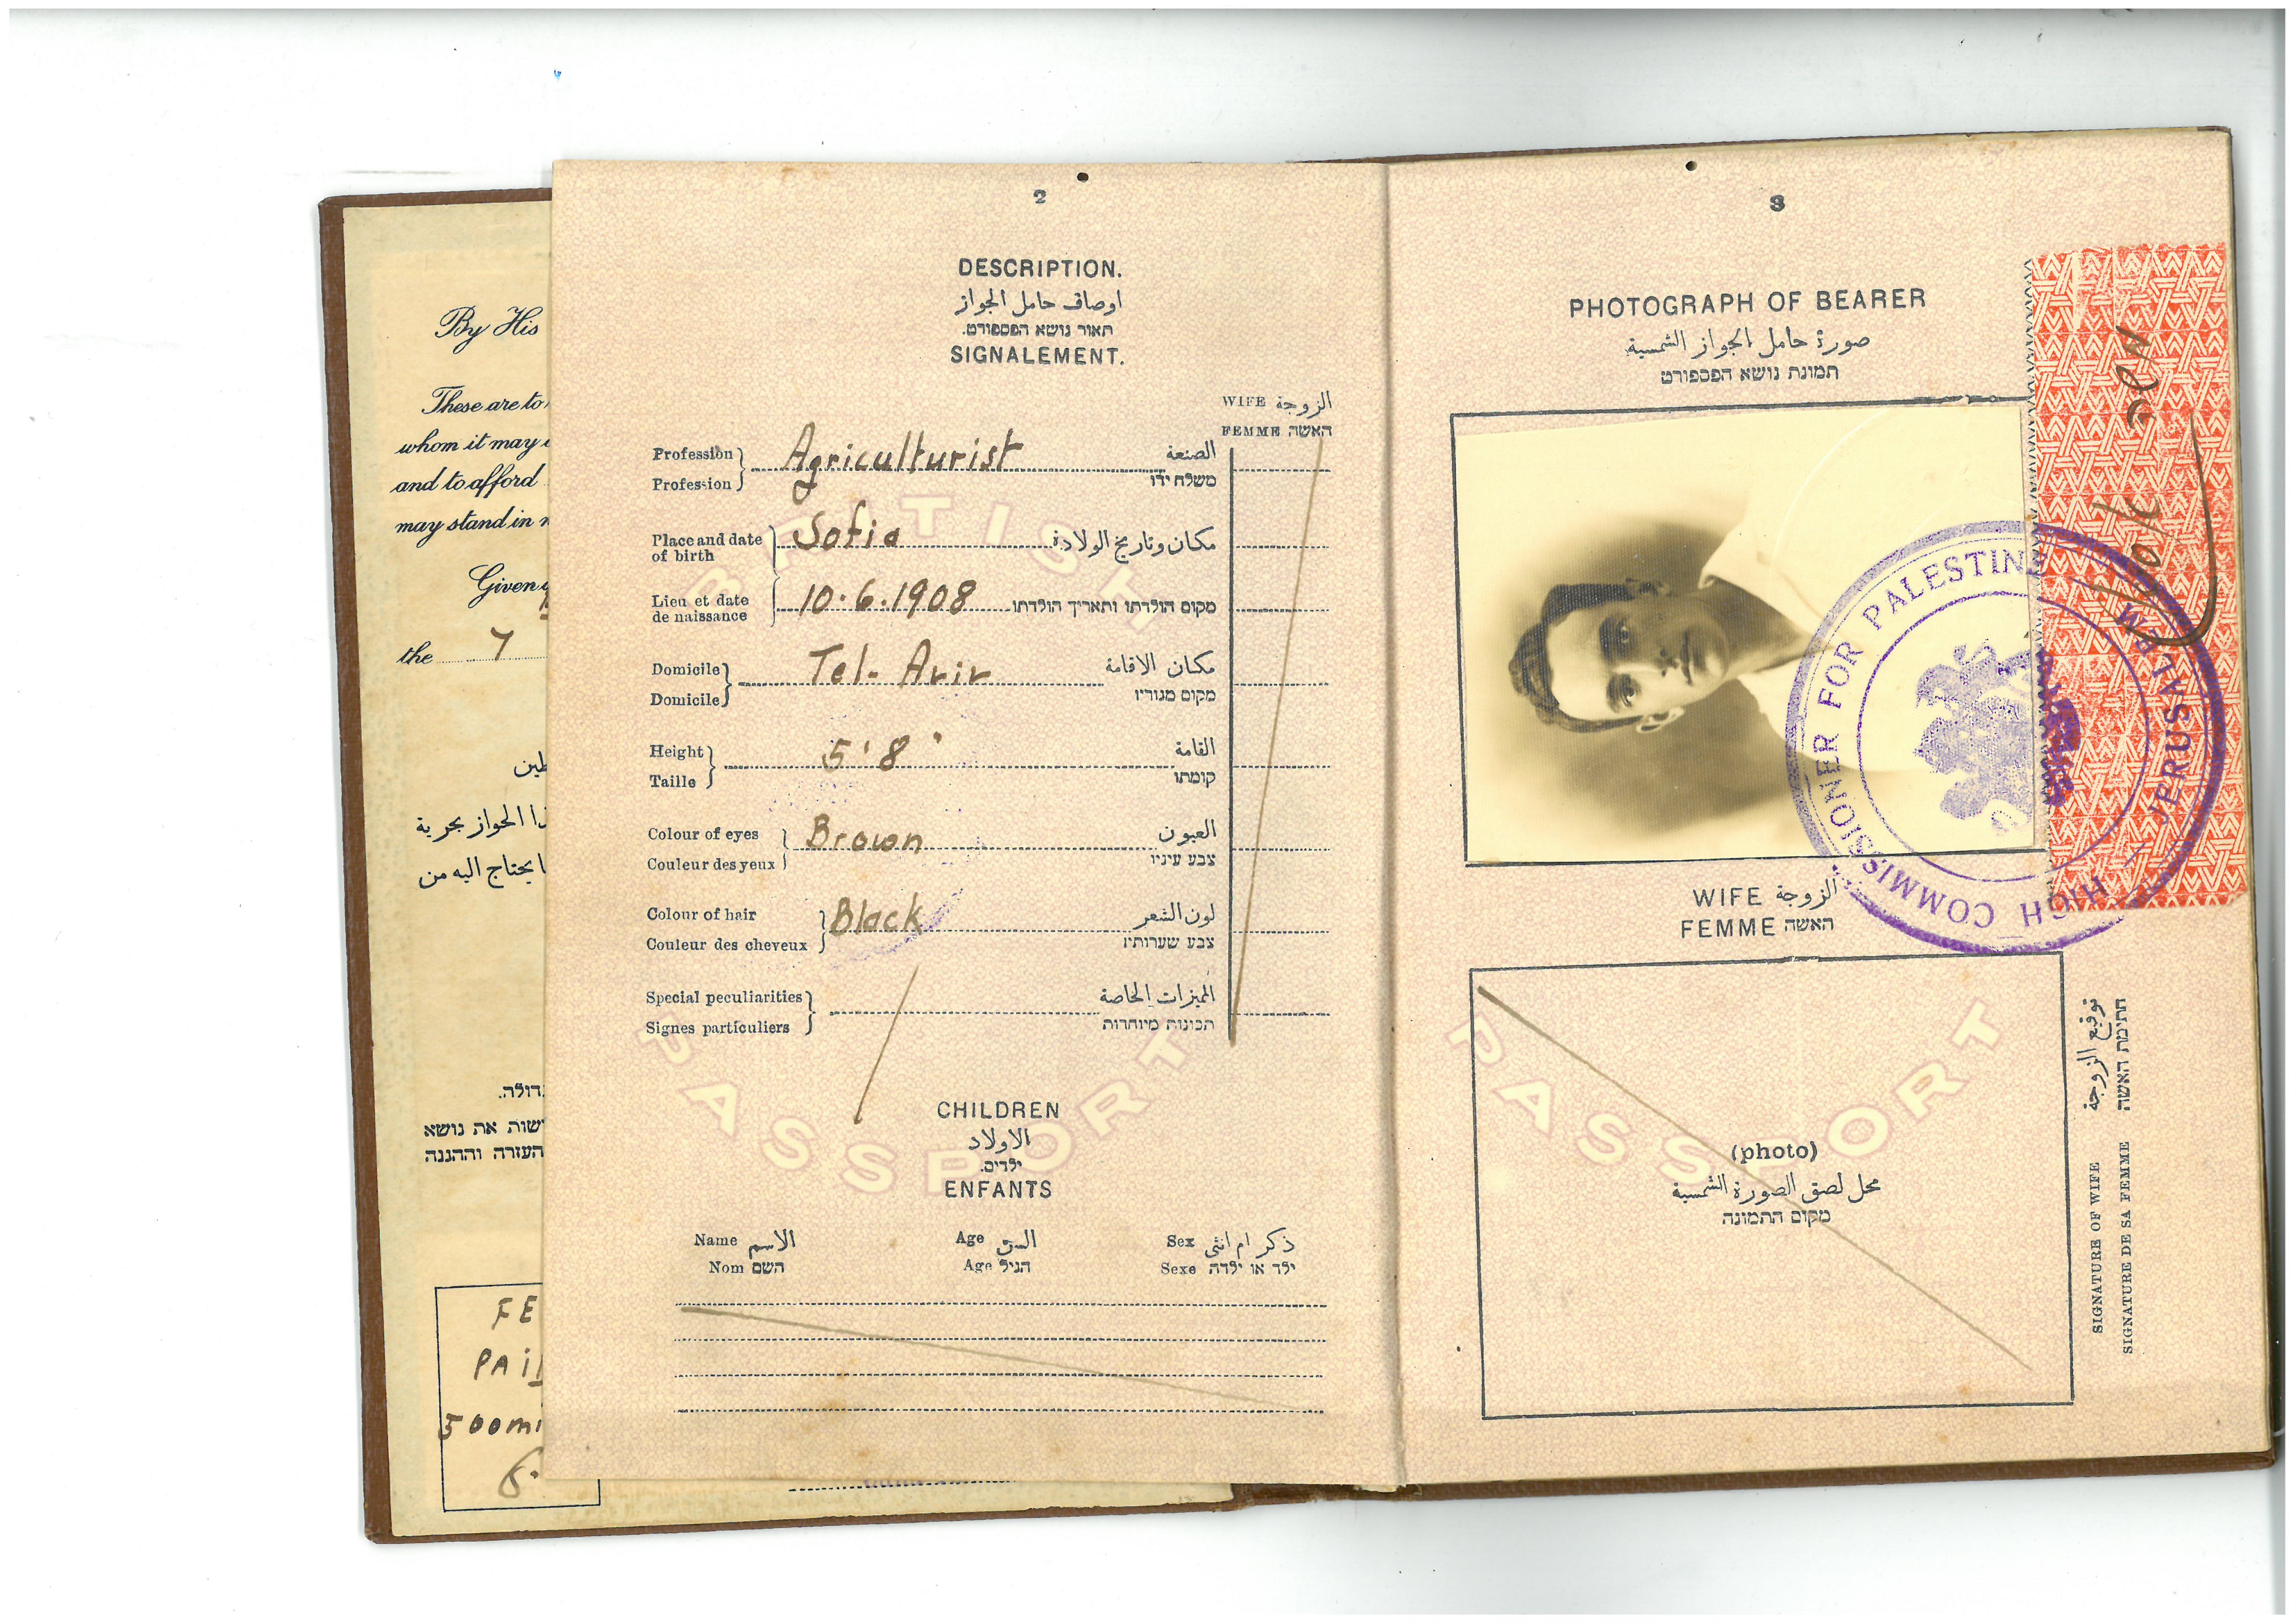 By His
These are to
whom it may
and to afford
may stand in
Given
the 7
طين
ذا الجواز بحرية
ا يحتاج اليه من
דולה.
שות את נושא
העזרה וההגנה
FE
PAI
500mi
6.
2
DESCRIPTION.
اوصاف حامل الجواز
תאור נושא הפספורט.
SIGNALEMENT.
WIFE الزوجة
FEMME האשה
Profession Agriculturist الصنعة
Profession משלח ידו
Place and date of birth Sofia مكان وتاريخ الولادة
Lieu et date de naissance 10.6.1908 מקום הולדתו ותאריך הולדתו
Domicile Tel-Aviv مكان الاقامة
Domicile מקום מגוריו
Height 5'8" القامة
Taille קומתו
Colour of eyes Brown العيون
Couleur des yeux צבע עיניו
Colour of hair Black لون الشعر
Couleur des cheveux צבע שערותיו
Special peculiarities الميزات الخاصة
Signes particuliers תכונות מיוחדות
BRITISH
PASSPORT
CHILDREN
الاولاد
ילדים.
ENFANTS
Name الاسم Age السن Sex ذكر ام انثى
Nom השם Age הגיל Sexe ילד או ילדה
3
PHOTOGRAPH OF BEARER
صورة حامل الجواز الشمسية
תמונת נושא הפספורט
HIGH COMMISSIONER FOR PALESTINE
JERUSALEM
WIFE الزوجة
FEMME האשה
PASSPORT
(photo)
محل لصق الصورة الشمسية
מקום התמונה
SIGNATURE OF WIFE توقيع الزوجة
SIGNATURE DE SA FEMME חתימת האשה